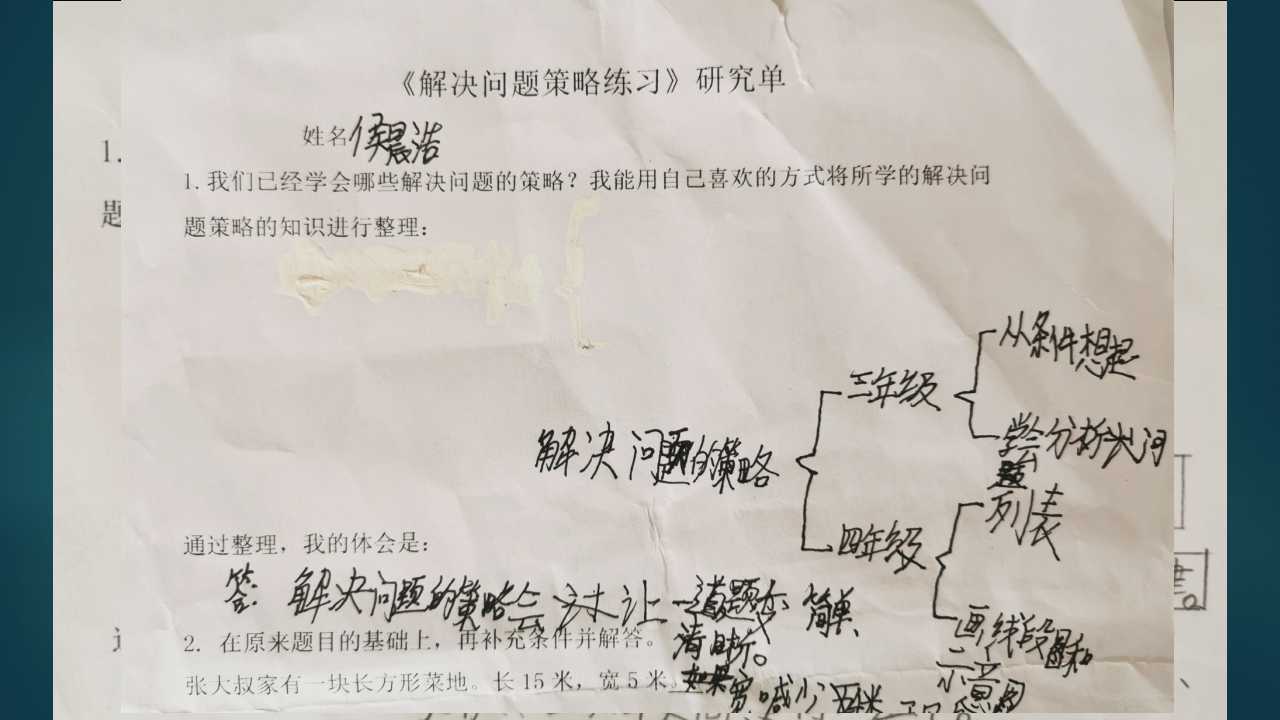 《解决问题策略练习》研究单
姓名 侯晨浩
1. 我们已经学会哪些解决问题的策略？我能用自己喜欢的方式将所学的解决问
题策略的知识进行整理：
从条件想起
三年级
学会分析
题
解决问题的策略
列表
四年级
画线段图和
示意图
通过整理，我的体会是：
答：解决问题的策略会 让一道题 简单、
清晰。
2. 在原来题目的基础上，再补充条件并解答。
张大叔家有一块长方形菜地。长 15 米，宽 5 米。如果宽减少
1.
题